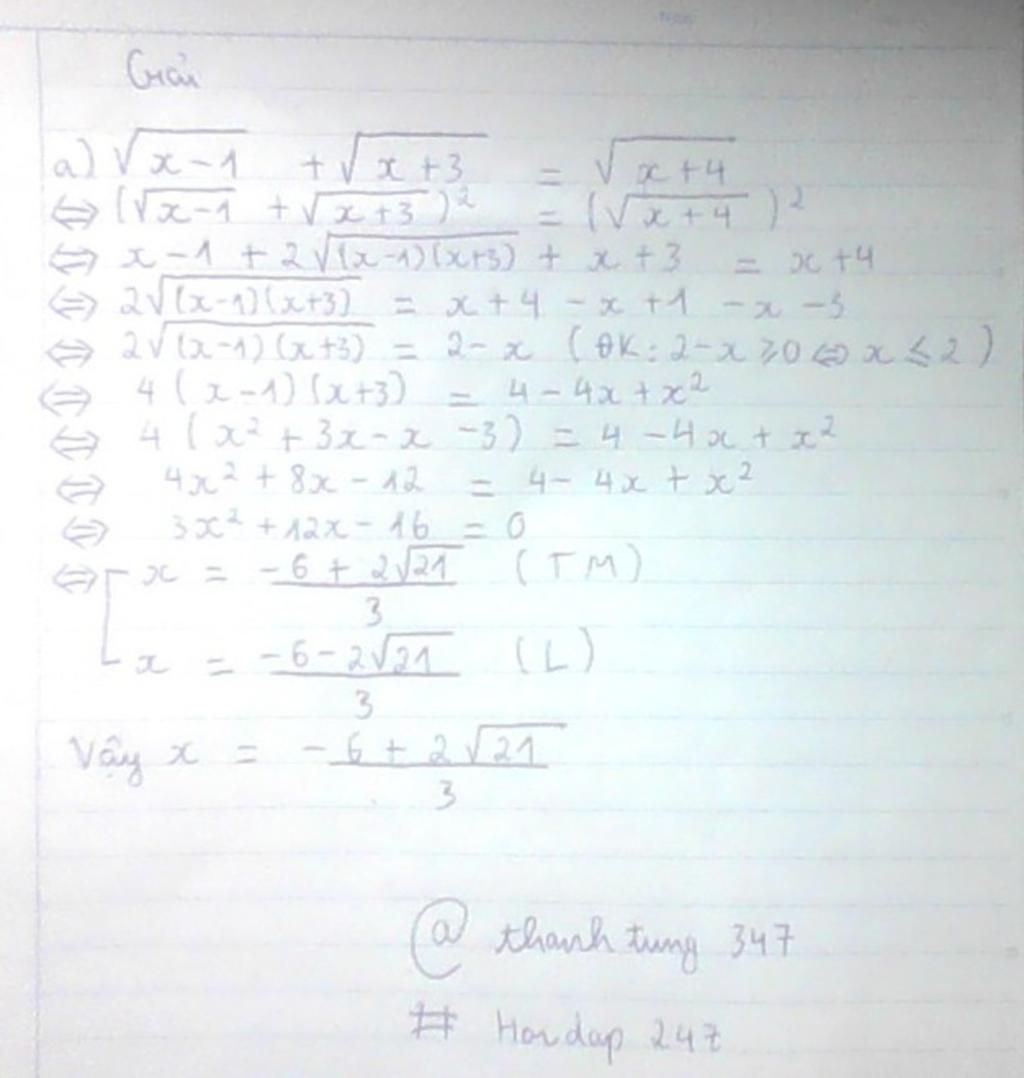 Giải
a) √(x-1) + √(x+3) = √(x+4)
⇔ (√(x-1) + √(x+3))² = (√(x+4))²
⇔ x-1 + 2√((x-1)(x+3)) + x+3 = x+4
⇔ 2√((x-1)(x+3)) = x+4 -x+1 -x-3
⇔ 2√((x-1)(x+3)) = 2-x (ĐK: 2-x ⩾ 0 ⇔ x ⩽ 2)
⇔ 4(x-1)(x+3) = 4-4x+x²
⇔ 4(x²+3x-x-3) = 4-4x+x²
⇔ 4x²+8x-12 = 4-4x+x²
⇔ 3x²+12x-16 = 0
⇔ [ x = (-6+2√21)/3 (TM)
x = (-6-2√21)/3 (L)
Vậy x = (-6+2√21)/3
@ thanh tung 347
# Hoidap 247